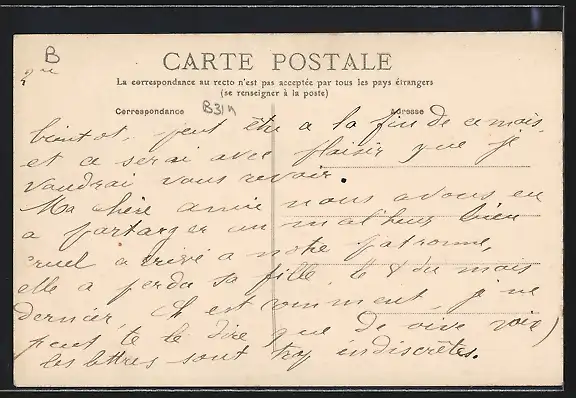 B
CARTE POSTALE
La correspondance au recto n'est pas acceptée par tous les pays étrangers
(se renseigner à la poste)
B314
Correspondance
Adresse
bientot, peut être a la fin de ce mois,
et ce serai avec plaisir que je
voudrai vous revoir.
Ma chère amie nous avons eu
a partarger un malheur bien
cruel arrivé a notre patronne,
elle a perdu sa fille, le 8 du mois
dernier, et comment, je ne
peut te le dire que de vive voix
les lettres sont trop indiscrètes.